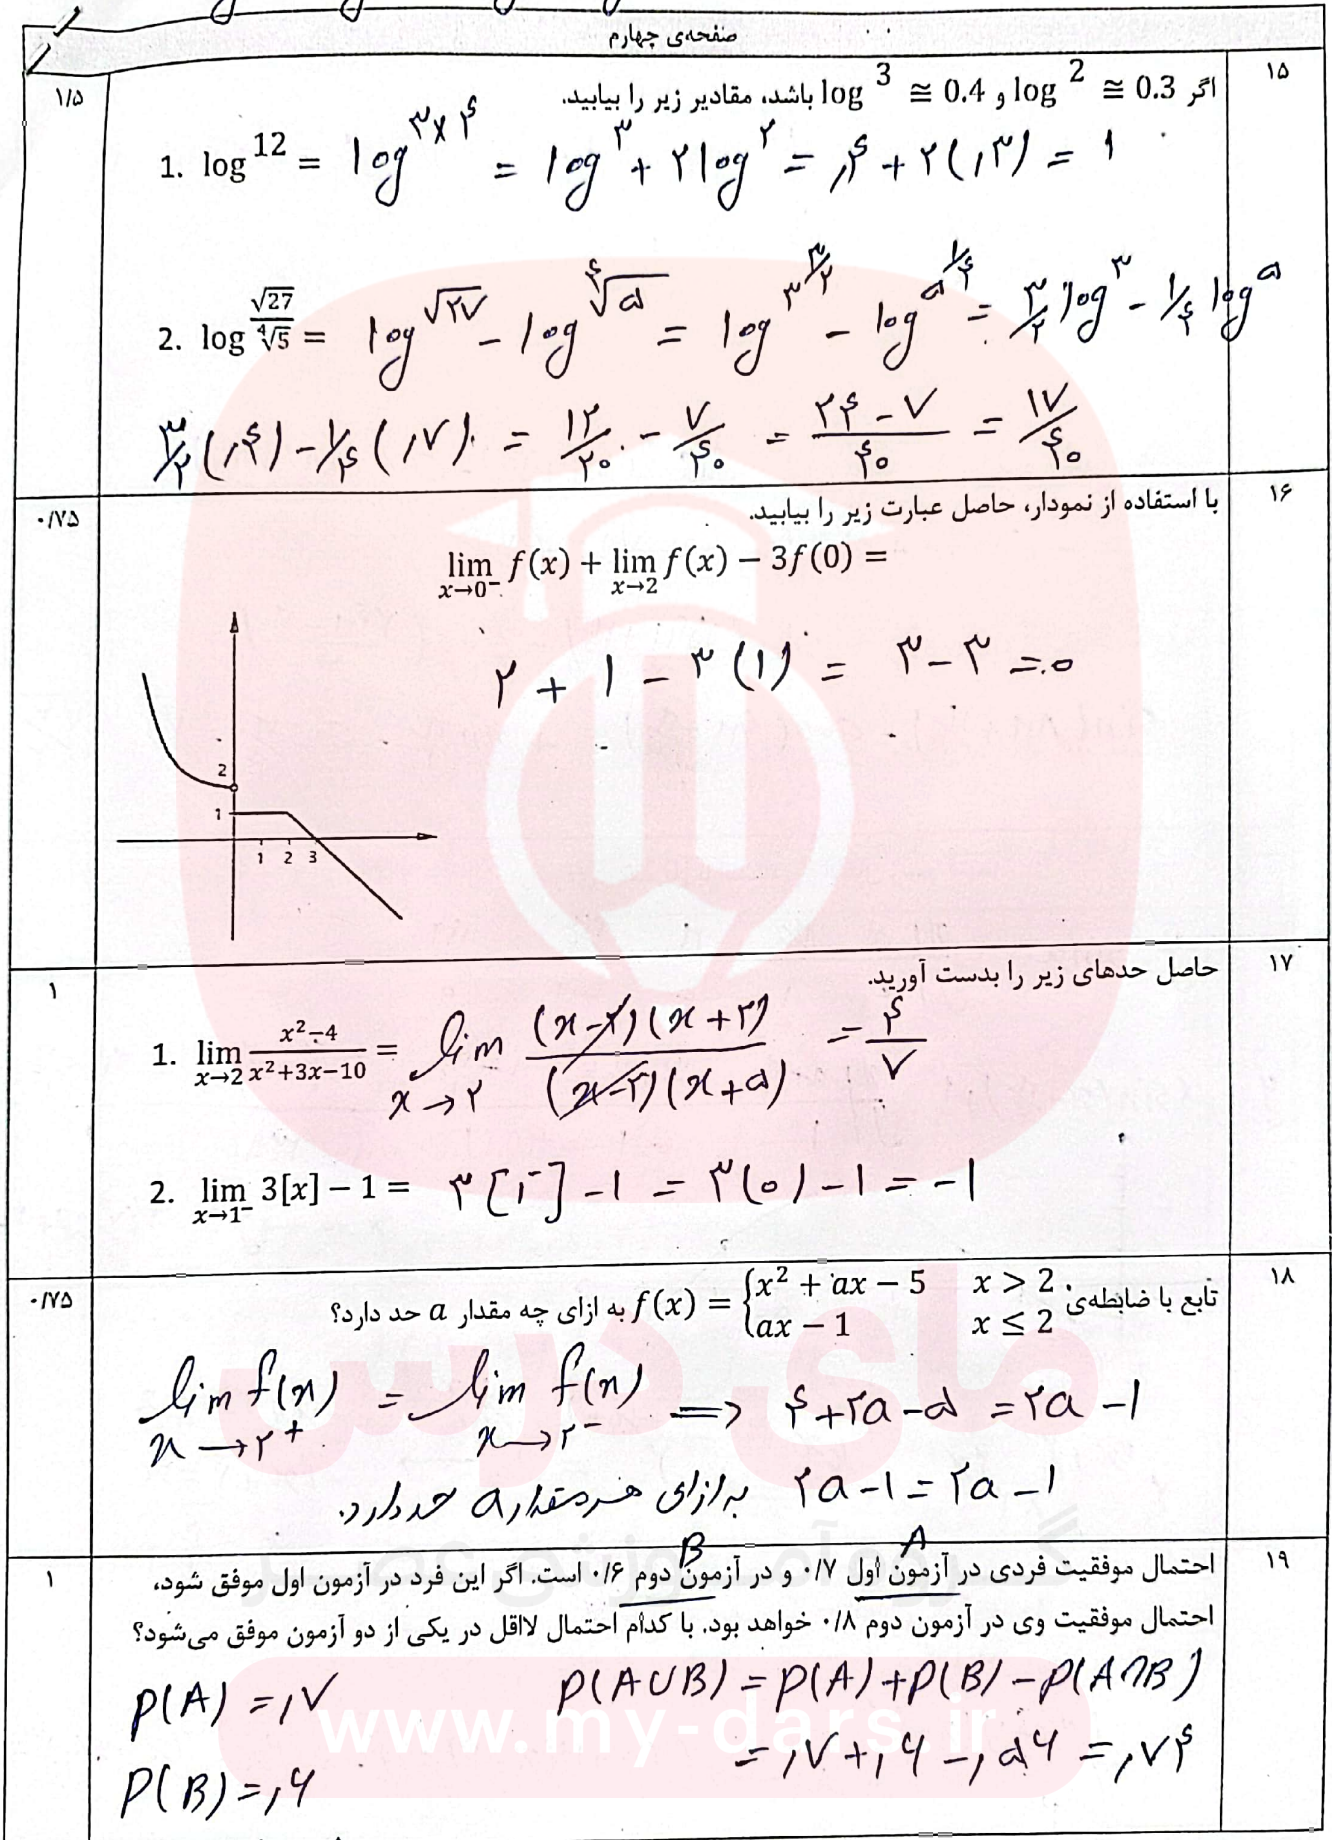 صفحه‌ی چهارم
۱۵
اگر log 2 ≅ 0.3 و log 3 ≅ 0.4 باشد، مقادیر زیر را بیابید.
۱/۵
1. log 12 = log ۳×۴ = log ۳ + ۲ log ۲ = ,۴ + ۲(,۳) = ۱
2. log √27/∜5 = log √۲۷ − log ∜۵ = log ۳^(۳/۲) − log ۵^(۱/۴) = ۳/۲ log ۳ − ۱/۴ log ۵
۳/۲ (,۴) − ۱/۴ (,۷) = ۱۲/۲۰ − ۷/۴۰ = (۲۴ − ۷)/۴۰ = ۱۷/۴۰
۱۶
با استفاده از نمودار، حاصل عبارت زیر را بیابید.
۰/۷۵
lim x→0⁻ f(x) + lim x→2 f(x) − 3f(0) =
۲ + ۱ − ۳(۱) = ۳ − ۳ = ۰
2
1
1 2 3
۱۷
حاصل حدهای زیر را بدست آورید.
۱
1. lim x→2 (x²−4)/(x²+3x−10) = lim x→۲ (x−۲)(x+۲)/(x−۲)(x+۵) = ۴/۷
2. lim x→1⁻ 3[x] − 1 = ۳[۱⁻] − ۱ = ۳(۰) − ۱ = −۱
۱۸
تابع با ضابطه‌ی f(x) = {x² + ax − 5 x > 2 ax − 1 x ≤ 2 به ازای چه مقدار a حد دارد؟
۰/۷۵
lim f(x) x→۲⁺ = lim f(x) x→۲⁻ ⇒ ۴+۲a−۵ = ۲a−۱
۲a−۱ = ۲a−۱ به ازای هر مقدار a حد دارد.
مای درس
گروه آموزشی عصر
۱۹
A B
احتمال موفقیت فردی در آزمون اول ۰/۷ و در آزمون دوم ۰/۶ است. اگر این فرد در آزمون اول موفق شود،
۱
احتمال موفقیت وی در آزمون دوم ۰/۸ خواهد بود. با کدام احتمال لااقل در یکی از دو آزمون موفق می‌شود؟
P(A) = ,۷ P(A∪B) = P(A) + P(B) − P(A∩B)
www.my-dars.ir
= ,۷ + ,۶ − ,۵۶ = ,۷۴
P(B) = ,۶